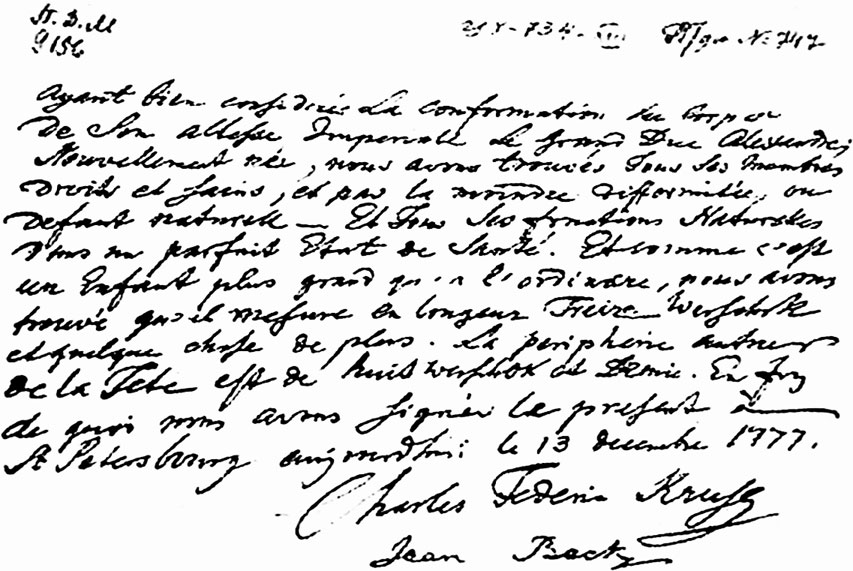 N. D. M
9156
No 747
ayant bien considerée La conformation du Corps
De Son altesse Imperiale Le Grand Duc Alexandre,
Nouvellement née, nous avons trouvés Tous Ses Membres
Droits et sains, et pas la moindre difformitée, ou
Defaut naturell — Et Tous Ses fonctions Naturelles
dans un parfait Etat de Santé. Et comme c'est
un Enfant plus grand qu'a l'ordinaire, nous avons
trouvé qu'il mesure en longeur Treize Werschok
et quelque chose de plus. La peripherie autour
de la Tete est de huit Werschok et Demie. En foy
de quoi nous avons signée le present à
St Petersbourg aujourdhui le 13 decembre 1777.
Charles Federic Kruse
Jean